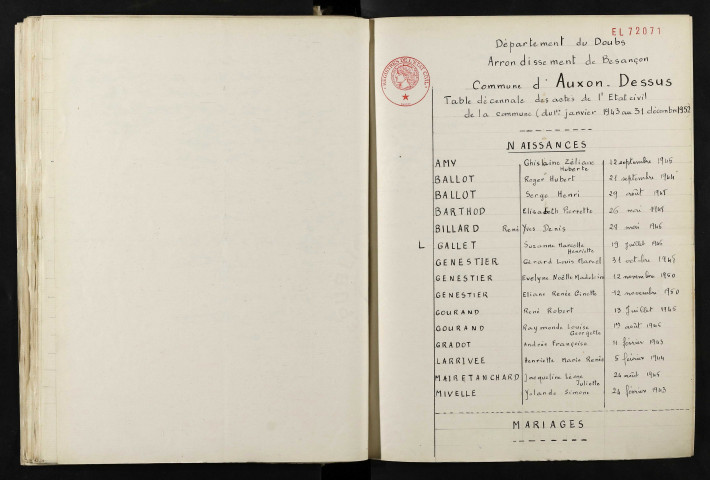 EL 72071
Département du Doubs
Arrondissement de Besançon
Commune d'Auxon-Dessus
Table décennale des actes de l'Etat civil
de la commune (du 1er janvier 1943 au 31 décembre 1952
NAISSANCES
AMY Ghislaine Zéliane Huberte 12 septembre 1946
BALLOT Roger Hubert 21 septembre 1944
BALLOT Serge Henri 29 août
BARTHOD Elisabeth Pierrette 26 mai
BILLARD René Yves Denis 29 mai 1946
L GALLET Suzanne Marcelle Henriette 19 juillet
GENESTIER Gérard Louis Marcel 31 octobre
GENESTIER Evelyne Noëlle Madeleine 12 novembre 1950
GENESTIER Eliane Renée Ginette 12 novembre 1950
GOURAND René Robert 13 Juillet 1945
GOURAND Raymonde Louise Georgette 19 août 1946
GRADOT Andrée Françoise 11 février 1943
LARRIVEE Henriette Marie Renée 5 février 1944
MAIRETANCHARD Jacqueline Léone Juliette 26 août
MIVELLE Yolande Simone 24 février 1943
MARIAGES